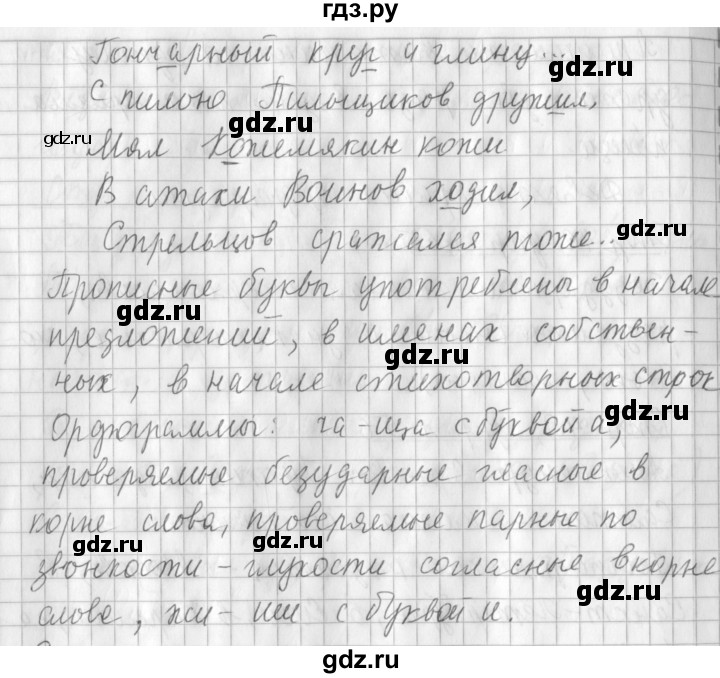 гдз.ру
Гончарный круг и глину...
gdz.ru
С пилою Пильщиков дружил,
gdz.ru
gdz.ru
Мял Кожемякин кожи
В атаки Воинов ходил,
Стрельцов сражался тоже...
gdz.ru
Прописные буквы употреблены в начале
gdz.ru
предложений, в именах собствен-
gdz.ru
ных, в начале стихотворных строк
gdz.ru
Орфограммы: ча-ща с буквой а,
проверяемые безударные гласные в
корне слова, проверяемые парные по
gdz.ru gdz.ru
звонкости - глухости согласные в корне
gdz.ru
слова, жи - ши с буквой и.
gdz.ru